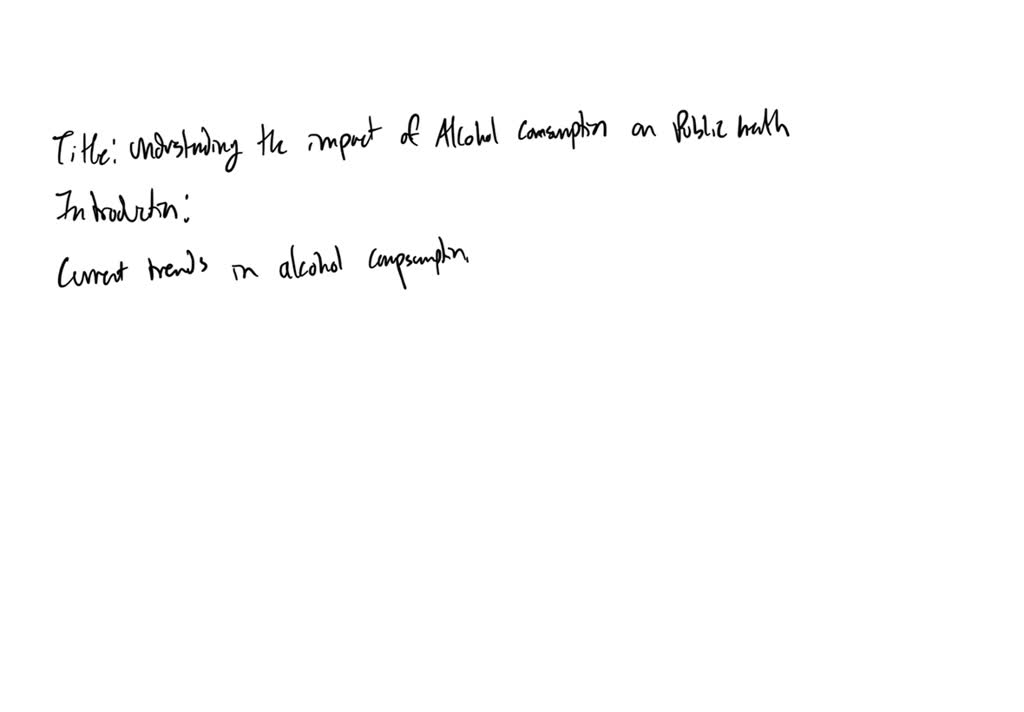 Title: Understanding the impact of Alcohol Consumption on Public health
Introduction:
Current trends in alcohol compsumption.